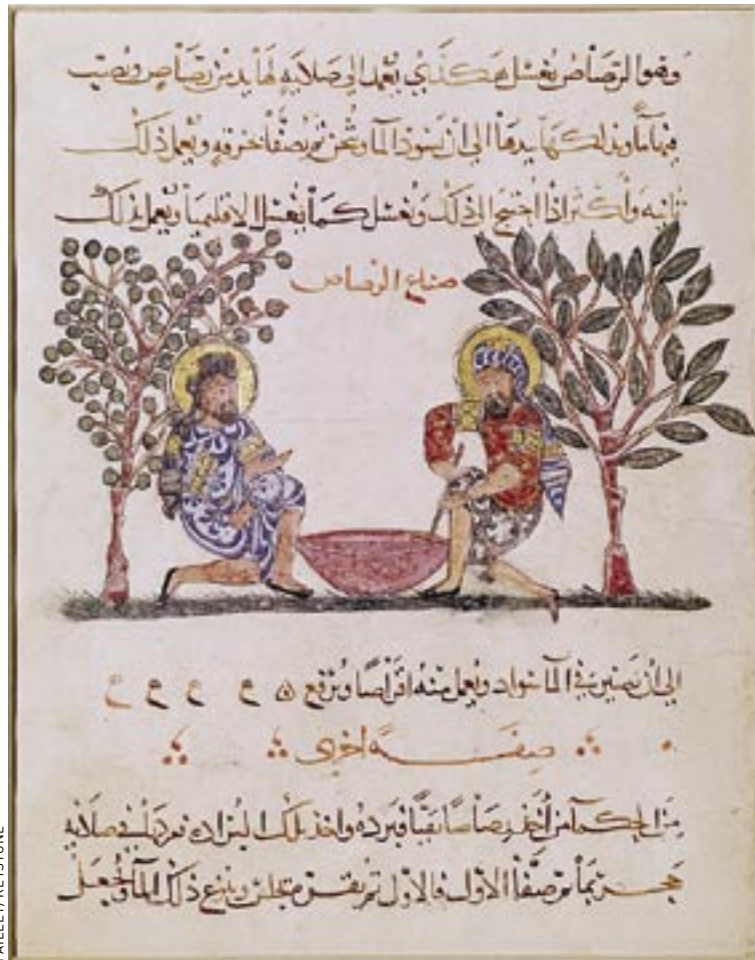 وهو الرصاص يغسل هكذي يعمد الى صلايه لها يد من رصاص ويصب
فيها ماً ويدلكها بيدها الى ان يسود الما ويثخن ثم يصفا خرقه ويعمل ذلك
ثانيه وأكثر اذا احتيج الى ذلك ويغسل كما يغسل الاقليميا ويعمل ذلك
صناع الرصاص
الى ان يصير في الما سواد ويعمل منه اقراصا ويرفع ه و و و و
صفه اخرى
من الحكما من أخذ رصاصا نقيا فبرده واخذ تلك البراده فدلك في صلايه
حجر بما ثم صفا الاول فالاول ثم ذلك الما ويجعل
PAILLET/KEYSTONE